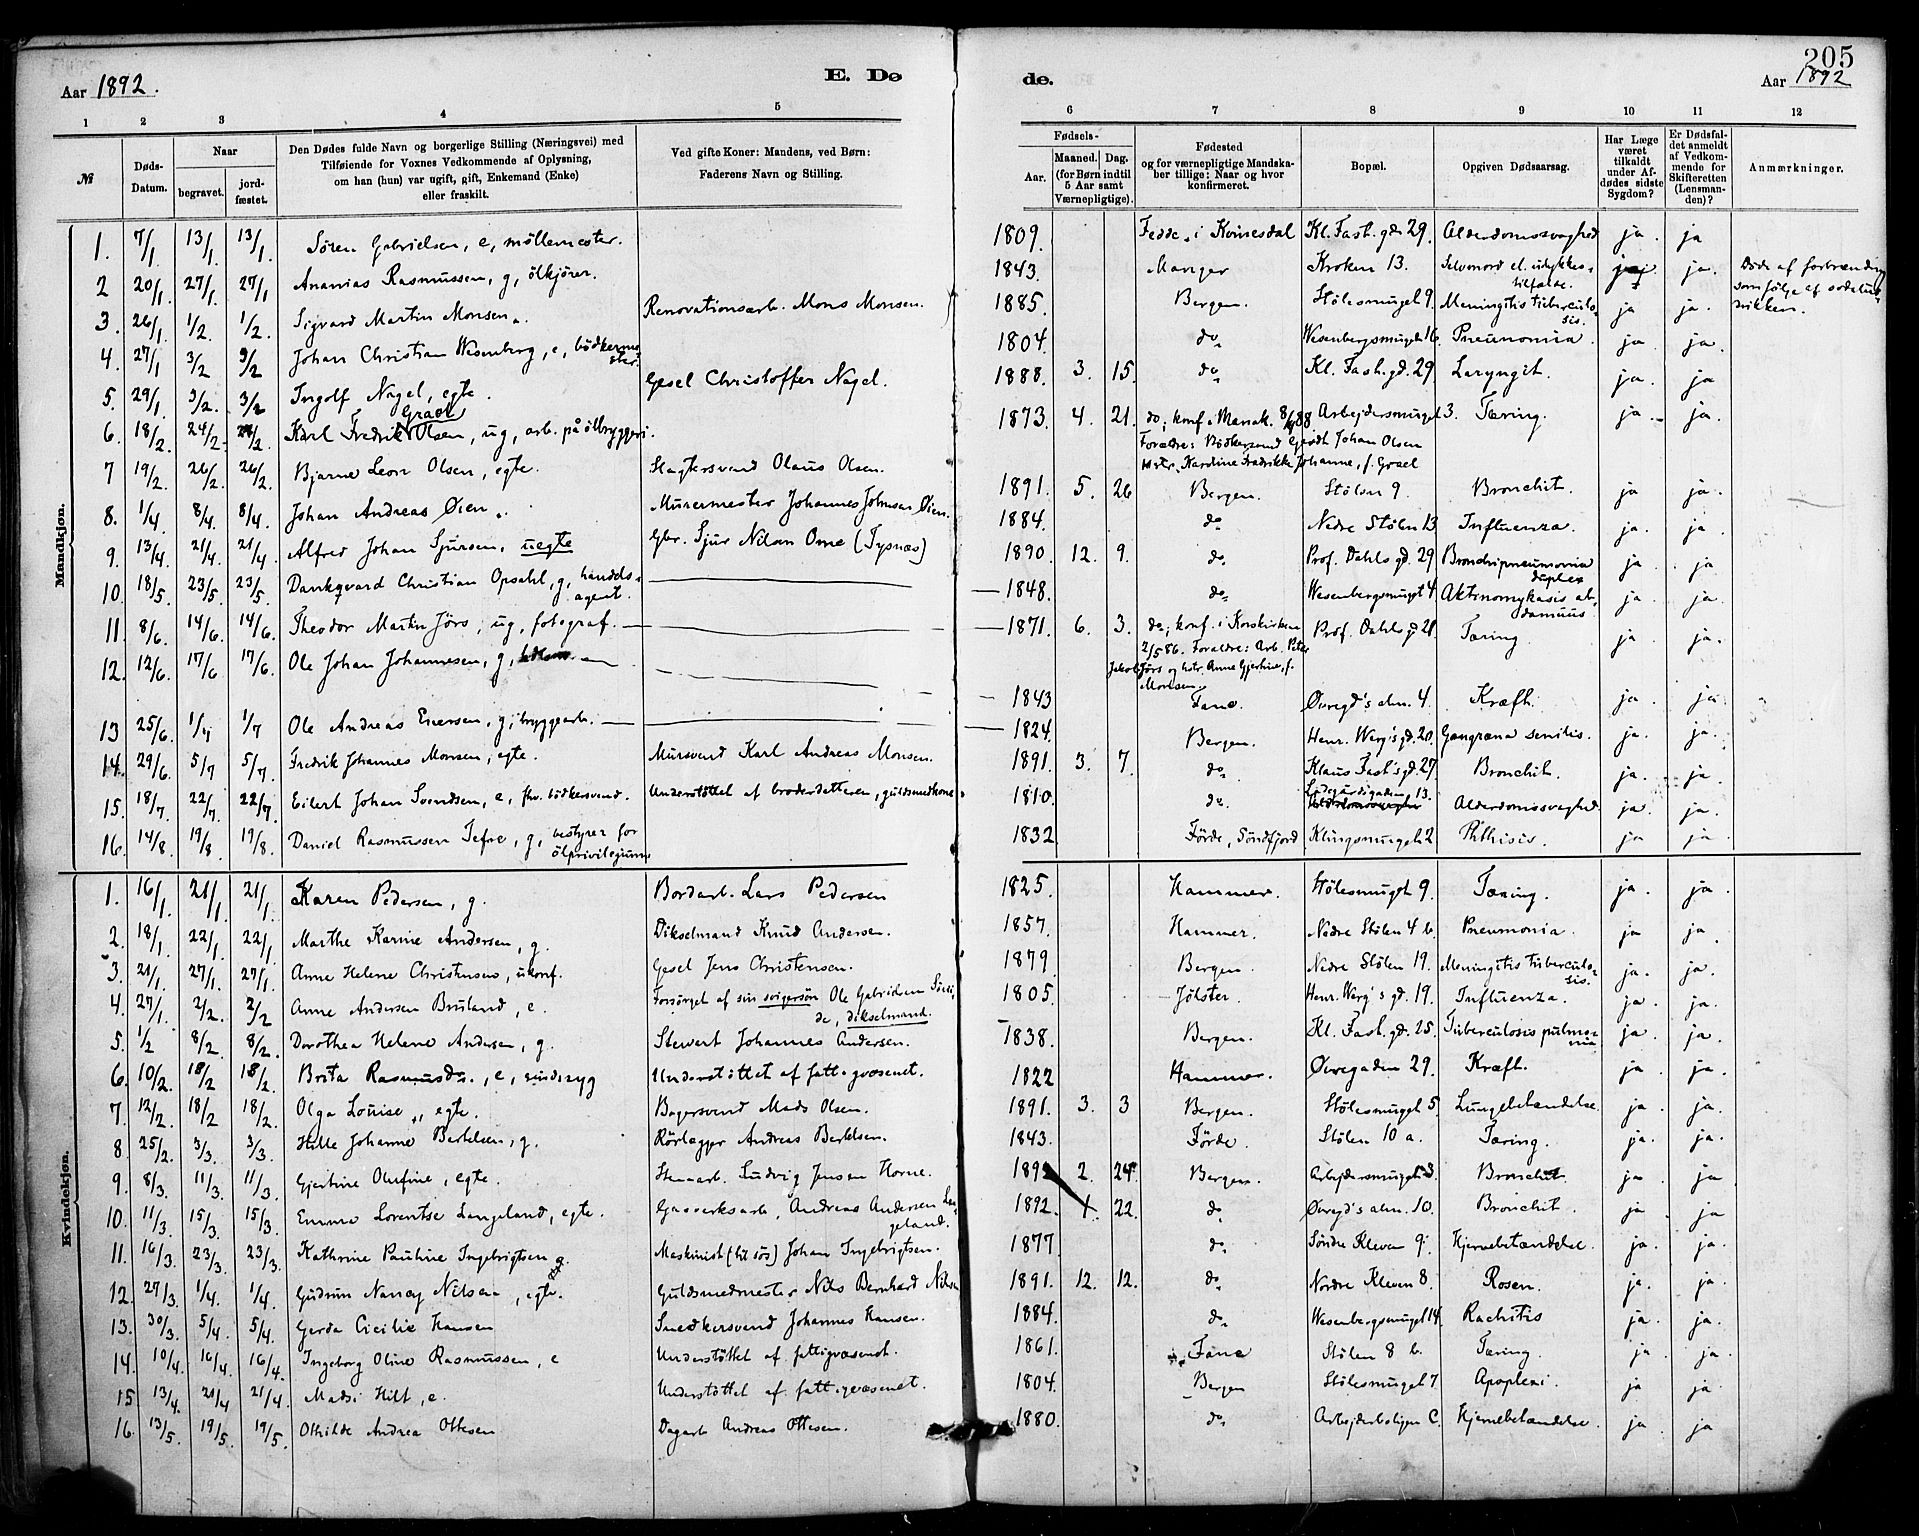 205
Aar 1892.
E. Dø
de.
Aar 1892
1 2 3 4 5 6 7 8 9 10 11 12
№
Døds-Datum.
Naar
begravet.
jord-fæstet.
Den Dødes fulde Navn og borgerlige Stilling (Næringsvei) med
Tilføiende for Voxnes Vedkommende af Oplysning,
om han (hun) var ugift, gift, Enkemand (Enke)
eller fraskilt.
Ved gifte Koner: Mandens, ved Børn:
Faderens Navn og Stilling.
Fødsels-
Aar.
Maaned. Dag.
(for Børn indtil
5 Aar samt
Værnepligtige).
Fødested
og for værnepligtige Mandska-
ber tillige: Naar og hvor
konfirmeret.
Bopæl.
Opgiven Dødsaarsag.
Har Læge
været
tilkaldt
under Af-
dødes sidste
Sygdom?
Er Dødsfal-
det anmeldt
af Vedkom-
mende for
Skifteretten
(Lensman-
den)?
Anmærkninger.
Mandkjøn.
1. 7/1 13/1 13/1 Sören Gabrielsen, e, möllemester. 1809. Fedde i Kvinesdal Kl. Fast. gd 29. Alderdomssvaghed ja. ja
2 20/1. 27/1. 27/1 Ananias Rasmussen, g, ölkjörer. 1843. Manger Kroken 13. Selvmord el. ulykkes-tilfælde. ja. Døde af forbrænding som følge af
3. 26/1 1/2. 1/2. Sigvard Martin Monsen. Renovationsarb. Mons Monsen. 1885. Bergen. Stölesmuget 9. Meningitis tuberculo-sis. ja ja.
4. 27/1 3/2 3/2 Johan Christian Wesenberg, e, bödkerme-ster. 1804. do Wesenbergsmuget 16. Pneumonia. ja. ja.
5. 29/1. 3/2. 3/2 Ingolf Nagel, egte. Gesel Christoffer Nagel. 1888. 3. 15. do Kl. Fast. gd. 29 Laryngit. ja. ja
6. 18/2. 24/2. 24/2. Karl Fredrik Olsen, ug, arb. på ölbryggeri. 1873. 4. 21. do, konf. i Mariak. 8/4 88 Arbejdersmuget 3. Tæring. ja. ja.
Forældre: Bödkersvend Gerdt Johan Olsen
Hstr. Kardine Fredrikke Johanne, f.
7 19/2. 26/2. 26/2 Bjarne Leon Olsen, egte. Slagtersvend Olaus Olsen. 1891. 5. 26 Bergen. Stölen 9. Bronchit. ja ja.
8. 1/4. 8/4. 8/4. Johan Andreas Øien. Murermester Johannes Johnsen Øien. 1884. do Nedre Stölen 13 Influenza. ja. ja.
9. 13/4. 21/4. 21/4. Alfred Johan Sjursen, uegte Gbr. Sjur Nilsen Ome (Tysnæs) 1890. 12. 9. do Prof. Dahls gd. 29 Bronchipneumonia duplex ja. ja
10. 18/5. 23/5. 23/5. Dankqvard Christian Opsahl, g, handels-agent. 1848. do Wesenbergsmuget 4 Aktinomykosis ab-domiuus. ja. ja.
11. 8/6. 14/6. 14/6. Theodor Martin Jörs, ug, fotograf. 1871. 6. 3. do, konf. i Korskirken Prof. Dahls gd 21. Tæring. ja. ja.
2/5 86. Forældre: Arb. Peter
Jakob Jörs og hstr. Anne Gjertine, f.
Monsen.
12. 12/6. 17/6 17/6. Ole Johan Johannesen, g, 1843 Fane. Øvregd's alm. 4. Kræft. ja. ja.
13 25/6. 1/7 1/7 Ole Andreas Enersen, g, bryggearb. 1824. Bergen. Henr. Werg's gd. 20. Gangræna senilis. ja. ja.
14. 29/6. 5/7 5/7. Fredrik Johannes Monsen, egte. Mursvend Karl Andreas Monsen. 1891. 3. 7. do Klaus Fast's gd. 27. Bronchit. ja. ja.
15. 18/7. 22/7. 22/7. Eilert Johan Svendsen, e, fhv. bödkersvend. Understöttet af broderdatteren, guldsmedkone. 1810. do. Ladegårdsgaden 13. Alderdomssvaghed ja. ja.
16. 14/8. 19/8 19/8. Daniel Rasmussen Tefre, g, bestyrer for ölprivilegium. 1832 Förde, Söndfjord Klingsmuget 2 Phthisis. ja ja.
Kvindekjøn.
1. 16/1. 21/1 21/1. Karen Pedersen, g. Bordarb. Lars Pedersen 1825. Hammer. Stölesmuget 9. Tæring. ja. ja.
2. 18/1 22/1 22/1. Marthe Karine Andersen, g. Dikselmand Knud Andersen. 1857. Hammer. Nedre Stölen 4 b. Pneumonia. ja
3. 21/1. 27/1. 27/1. Anne Helene Christensen, ukonf. Gesel Jens Christensen. 1879 Bergen. Nedre Stölen 19. Meningitis tuberculo-sis. ja. ja.
4. 27/1. 2/2. 2/2 Anne Andersen Bruland, e. Forsörget af sin svigersön Ole Gabrielsen de, dikselmand. 1805. Jölster. Henr. Werg's gd. 19. Influenza. ja. ja.
5. 1/2 8/2. 8/2. Dorothea Helene Andersen, g. Stewert Johannes Andersen. 1838. Bergen. Kl. Fast. gd. 25. Tuberculosis pulmo- ja. ja.
6. 10/2. 18/2 18/2. Brita Rasmusdtr., e, sindssyg Understöttet af fattigvæsenet. 1822 Hammer. Øvregaden 29. Kræft. ja. ja.
7. 12/2. 18/2 18/2. Olga Louise, egte. Bagersvend Mads Olsen. 1891. 3. 3 Bergen. Stölesmuget 5. Lungebetændelse. ja. ja.
8. 25/2. 3/3. 3/3. Hille Johanne Bertelsen, g. Rörlægger Andreas Bertelsen. 1843. Förde. Stölen 10 a. Tæring. ja. ja.
9. 8/3. 11/3. 11/3. Gjertine Olufine, egte. Stenarb. Ludvig Jensen Horne. 1892 2. 24. Bergen. Arbejdersmuget 3. Bronchit. ja. ja
10. 11/3. 15/3. 15/3. Emma Lorentse Langeland, egte. Gasverksarb. Andreas Andersen Lan-geland. 1892. 1. 22. do Øvregd's alm. 10. Bronchit. ja. ja
11. 16/3. 23/3. 23/3. Kathrine Pauline Ingebrigtsen g. Maskinist (til sös) Johan Ingebrigtsen. 1877 do Söndre Kleven 9. Hjernebetændelse. ja. ja.
12. 27/3. 1/4. 1/4. Gudrun Nancy Nilsen, egte. Guldsmedmester Nils Bernhard Nilsen 1891. 12. 12. do Nordre Kleven 8. Rosen. ja. ja.
13. 30/3. 5/4. 5/4. Gerda Cicilie Hansen Snedkersvend Johannes Hansen. 1884. do Wesenbergsmuget 14. Rachitis ja. ja.
14. 10/4. 16/4. 16/4. Ingeborg Oline Rasmussen, e Understöttet af fattigvæsenet. 1861. Fane Stölen 8 b. Tæring. ja. ja.
15. 13/4. 21/4 21/4. Madsi Hilt, e. Understöttet af fattigvæsenet. 1804. Bergen Stölesmuget 7 Apoplexi. ja ja.
16. 13/5. 19/5. 19/5. Othilde Andrea Ottesen Dagarb Andreas Ottesen. 1880. do Arbejderboligen C. Hjernebetændelse. ja ja